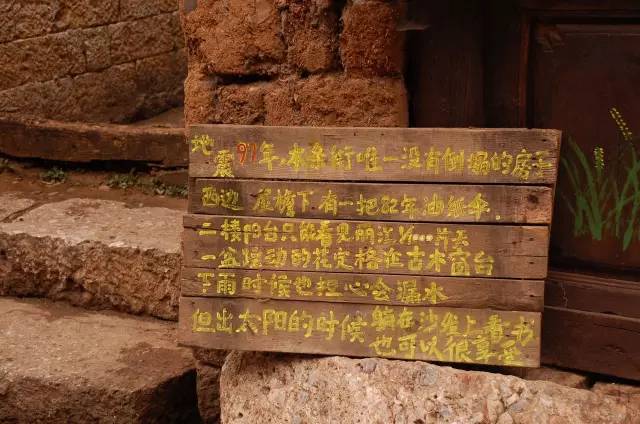 地震97年,本条街唯一没有倒塌的房子
西边 屋檐下.有一把82年油纸伞.
二楼阳台只能看见丽江...片天
一盆动的花定格在古木窗台
下雨时候也担心会漏水
但出太阳的时候 躺在沙发上看书
也可以很享受